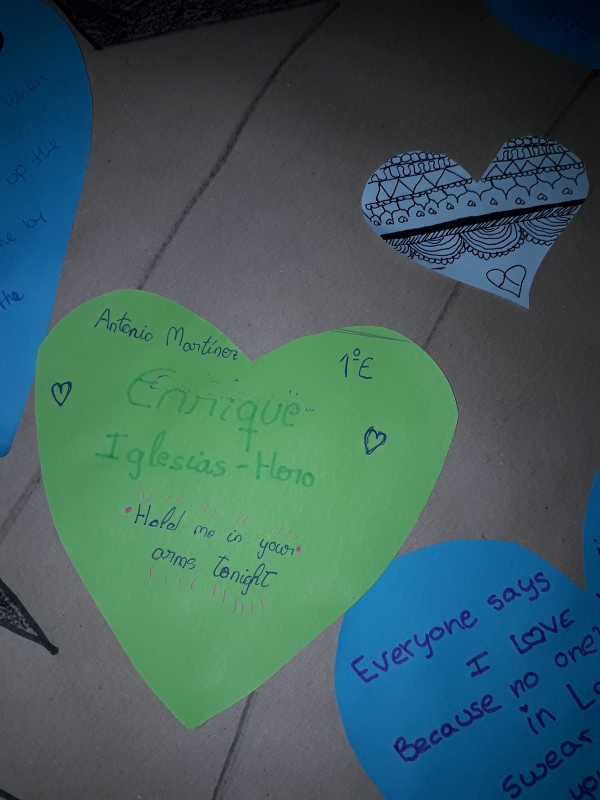 when
of the
by
the
Antonio Martínez
1ºE
Enrique
Iglesias - Hero
Hold me in your
arms tonight
Everyone says
I LOVE
Because no one
in
swear